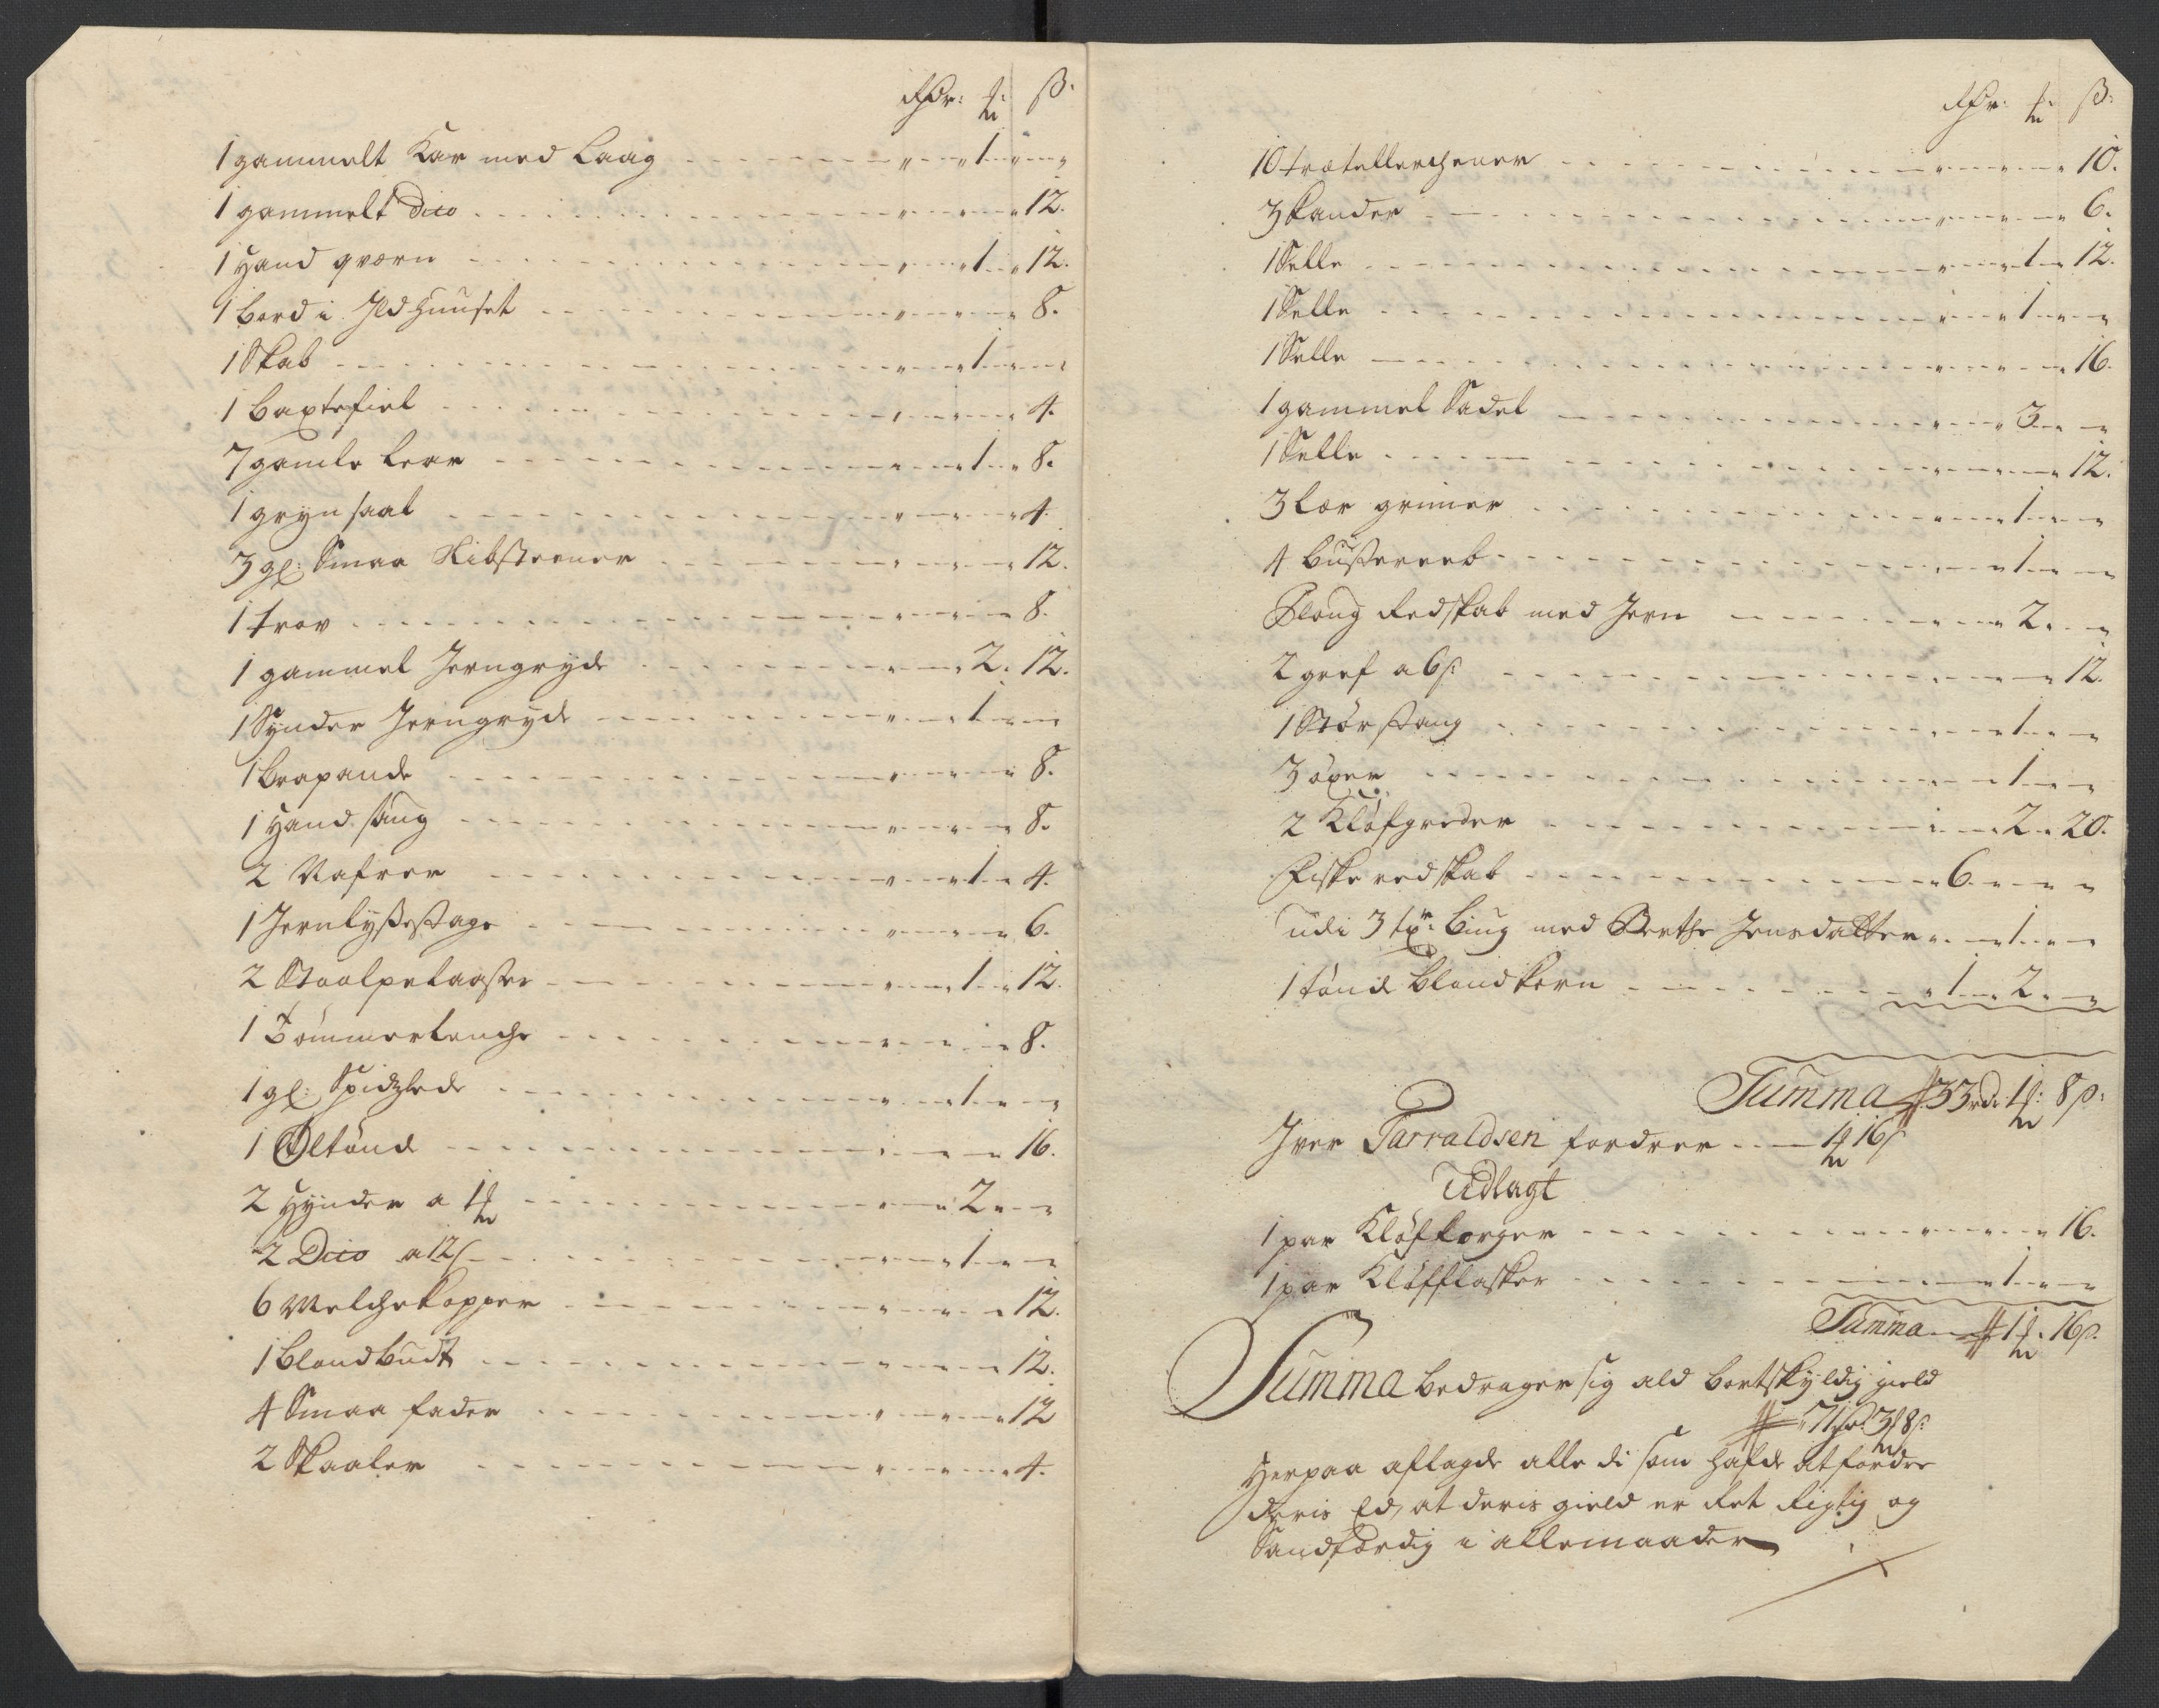 Rdr: ƒ: ß:
1 gammelt Kar med Laag - 1 -
1 gammelt Dito - 12.
1 Hand qværn - 1 - 12.
1 Bord i Ild Huuset - 8.
1 Skab - 1 -
1 baxtefiel - 4.
7 gamle lear - 1 - 8.
1 gryn saal - 4.
3 gl: Smaa 12.
1 trov - 8.
1 gammel Jerngryde - 2. 12.
1 Synder Jerngryde - 1 -
1 Brapande - 8.
1 Hand saug - 8.
2 Nafver - 1 - 4.
1 Jernlysestage - 6.
2 - 1 - 12.
1 Tømmerlenche - 8.
1 gl: Spidzslede - 1 -
1 Øltønd - 16.
2 Hynder a 1ƒ - 2 -
2 Dito a 12ß - 1 -
6 Melchekopper - 12.
1 blandbudt - 12.
4 Smaa fader - 12
2 Skaaler - 4.
Rdr: ƒ: ß:
10 trætellerchener - 10.
3 kander - 6.
1 Selle - 1 - 12.
1 Selle - 1 -
1 Selle - 16.
1 gammel Sadel - 3 -
1 Selle - 12.
3 lær grimer - 1 -
4 - 1 -
Ploug Redskab med Jern - 2. -
2 gref a 6ß: - 12.
1 Størstang - 1 -
3 öxer - 1 -
2 Kløfgreder - 2 - 20.
Fiske redskab - 6 - -
udi 3 biug med Berthe Jensdatter - 1 -
1 tønde blandkorn - 1 - 2. -
Summa 33rd. 1ƒ: 8ß:
Iver Tarraldsen fordrer - 1ƒ 16ß
Udlagt
1 par Kløfkorger - 16.
1 par Kløfflasker - 1 -
Summa - 1ƒ. 16ß.
Summa bedrager sig ald bortskyldig gield
71 rdr 3ƒ 8ß:
Herpaa aflagde alle di som hafde at fordre
deris Ed, at deris gield er Ret Rigtig og
Sandfærdig i allemaader